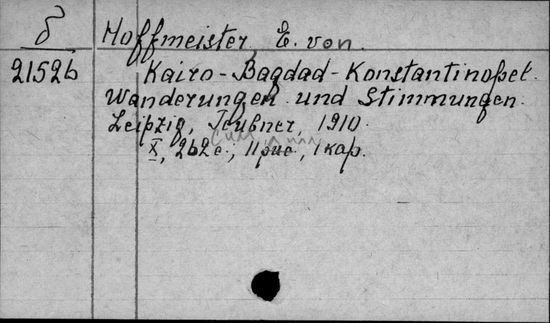 δ
Hoffmeister, E. von.
21526
Kairo-Bagdad-Konstantinopel.
Wanderungen und Stimmungen.
Leipzig, Teubner, 1910.
X, 262 c., 11 рис., 1 кар.